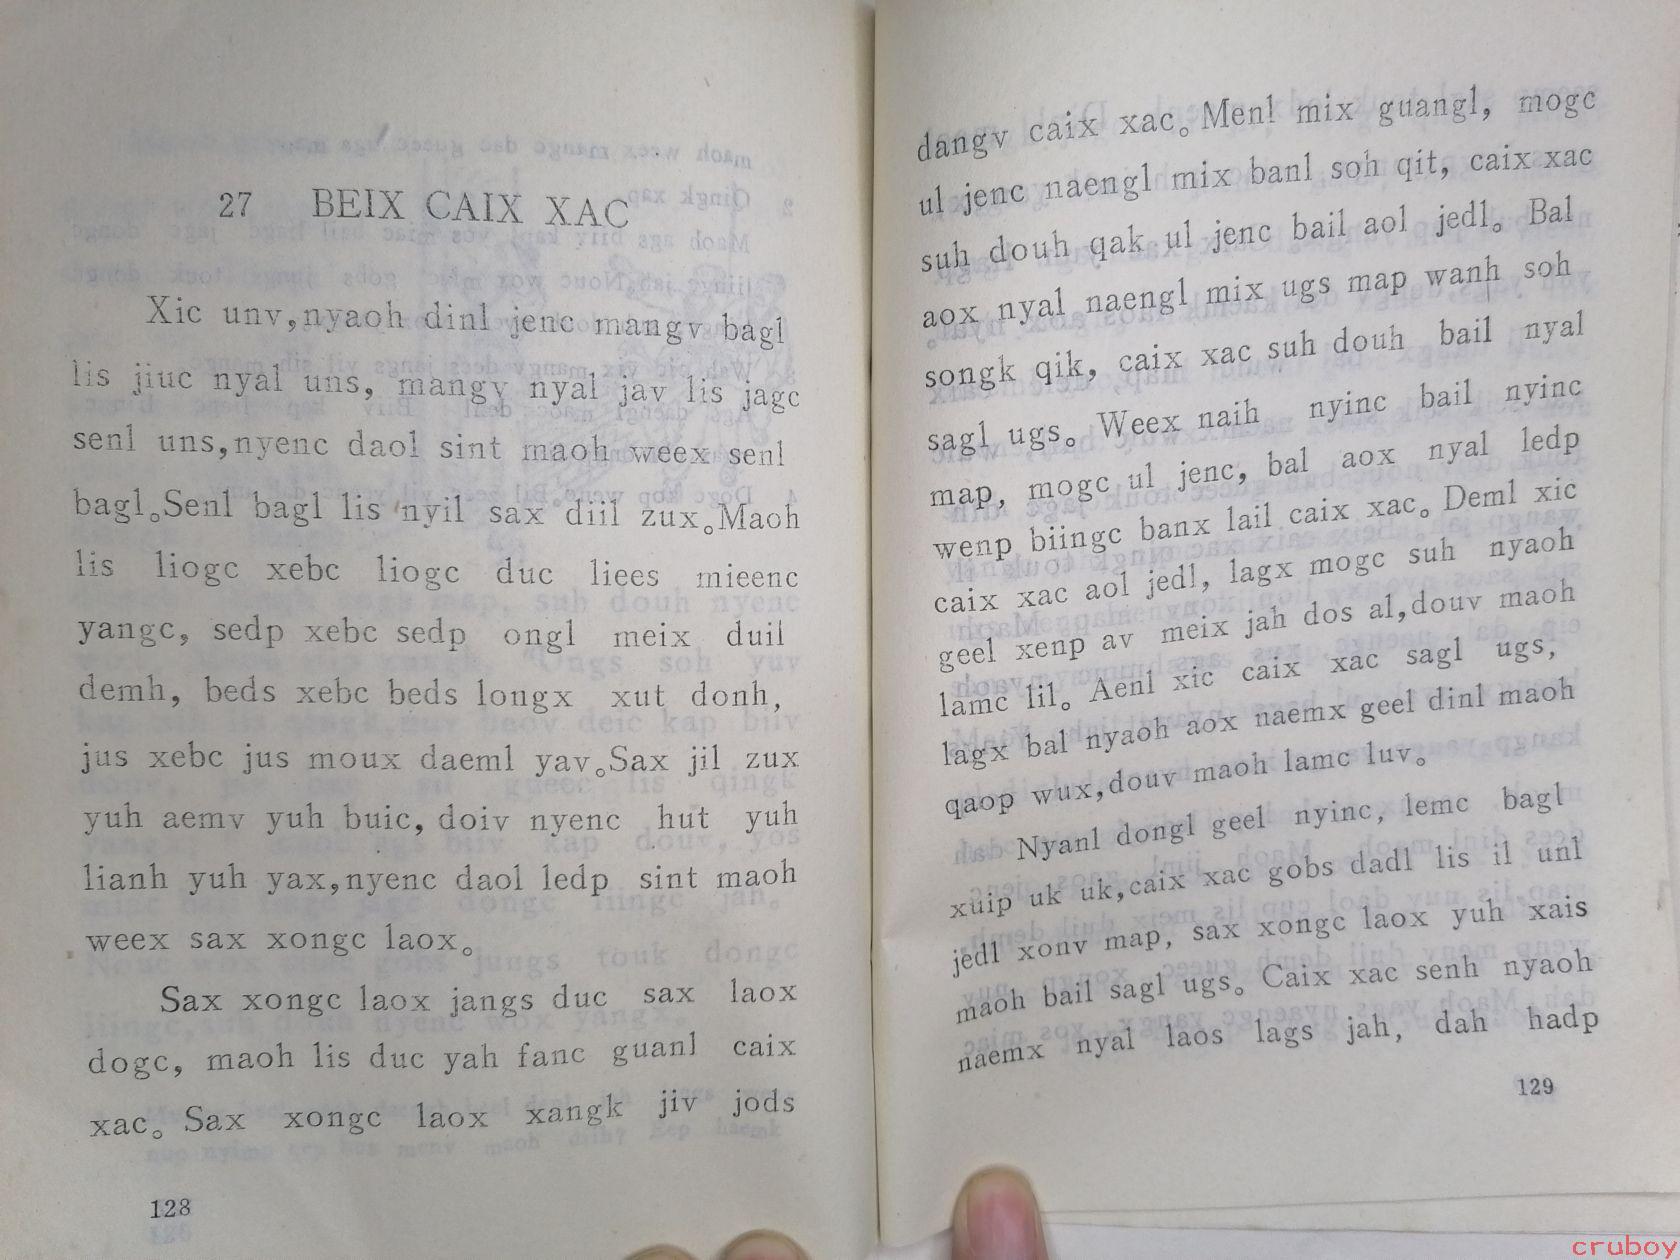 27 BEIX CAIX XAC
Xic unv,nyaoh dinl jenc mangv bagl
lis jiuc nyal uns, mangv nyal jav lis jagc
senl uns,nyenc daol sint maoh weex senl
bagl。Senl bagl lis nyil sax diil zux。Maoh
lis liogc xebc liogc duc liees mieenc
yangc, sedp xebc sedp ongl meix duil
demh, beds xebc beds longx xut donh,
jus xebc jus moux daeml yav。Sax jil zux
yuh aemv yuh buic, doiv nyenc hut yuh
lianh yuh yax,nyenc daol ledp sint maoh
weex sax xongc laox。
Sax xongc laox jangs duc sax laox
dogc, maoh lis duc yah fanc guanl caix
xac。Sax xongc laox xangk jiv jods
128
dangv caix xac。Menl mix guangl, mogc
ul jenc naengl mix banl soh qit, caix xac
suh douh qak ul jenc bail aol jedl。Bal
aox nyal naengl mix ugs map wanh soh
songk qik, caix xac suh douh bail nyal
sagl ugs。Weex naih nyinc bail nyinc
map, mogc ul jenc, bal aox nyal ledp
wenp biingc banx lail caix xac。Deml xic
caix xac aol jedl, lagx mogc suh nyaoh
geel xenp av meix jah dos al,douv maoh
lamc lil。Aenl xic caix xac sagl ugs,
lagx bal nyaoh aox naemx geel dinl maoh
qaop wux,douv maoh lamc luv。
Nyanl dongl geel nyinc, lemc bagl
xuip uk uk,caix xac gobs dadl lis il unl
jedl xonv map, sax xongc laox yuh xais
maoh bail sagl ugs。Caix xac senh nyaoh
naemx nyal laos lags jah, dah hadp
129
cruboy